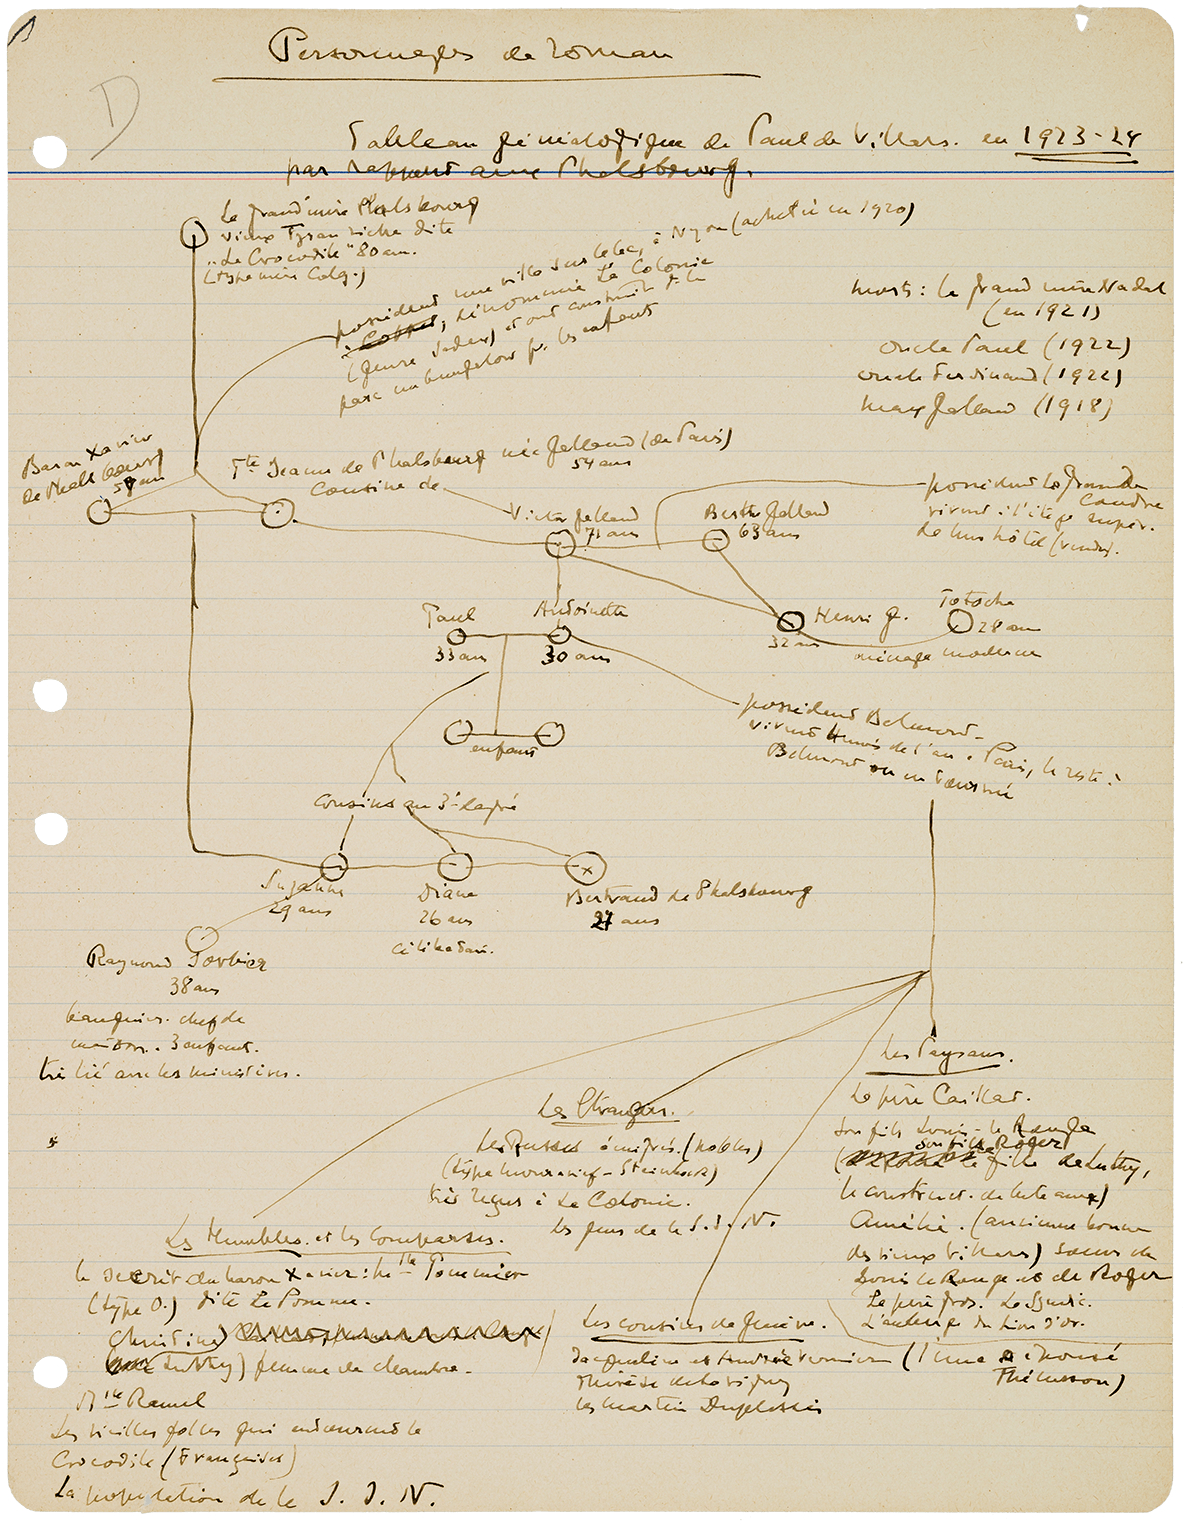 Personnages de roman
D
Tableau généalogique de Paul de Villars. en 1923-24
par rapport aux Phalsbourg.
La grand'mère Phalsbourg
vieux Tyran riche dite
"Le Crocodile" 80 ans.
(type mère Calg.)
possèdent une villa sur le lac, à Nyon (acheté en 1920)
à Coppet, dénommée La Colonie
(genre) et ont construit ds le
parc un bungalow pr. les enfants
morts : la grand mère Nadal
(en 1921)
oncle Paul (1922)
oncle Ferdinand (1922)
Max Jalland (1918)
Baron Xavier
de Phalsbourg
ans
Jeanne de Phalsbourg née Jalland (de Paris)
54 ans
cousine de
Victor Jalland
71 ans
Berthe Jalland
63 ans
possèdent la grande
vivent à l'étage supér.
de leur hôtel (vendu).
Paul
33 ans
Antoinette
30 ans
Henri J.
32 ans
Totoche
28 ans
ménage moderne
enfants
possèdent Belmont
vivent 4 mois de l'an à Paris, le reste à
Belmont ou en tournée
cousins au 3e degré
Suzanne
29 ans
Diane
26 ans
célibataire.
Bertrand de Phalsbourg
27 ans
Raymond
38 ans
banquier. chef de
maison. 3 enfants.
très lié avec les ministères.
Les Etrangers.
Les Russes émigrés. (nobles)
(type)
très reçus à La Colonie.
les gens de la S. D. N.
Les Paysans.
Le père Caillat.
son fils Louis-le Rouge
son fils Roger
la fille de Luthy,
le construct. de bateaux)
Amélie. (ancienne bonne
des vieux Villars) soeur de
Louis le Rouge et de Roger
Le père Gros. Le Syndic.
L'auberge du Lion d'or.
Les Humbles et les comparses.
le secrét. du baron Xavier : Pommier
(type O.) dite La Pomme.
Christine
Luthy) femme de chambre.
Mlle Ramel
Les vieilles folles qui entourent le
Crocodile (Françaises)
La population de la S. D. N.
Les cousins de Genève.
Jacqueline et Andrée Vernier (l'une a épousé
Thélusson)
Thérèse
les Martin Duplessis